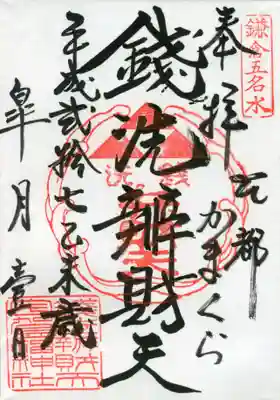 鎌倉五名水
奉拝
古都
かまくら
銭洗
錢洗辨財天
平成弐拾七乙未歳
皐月壹日